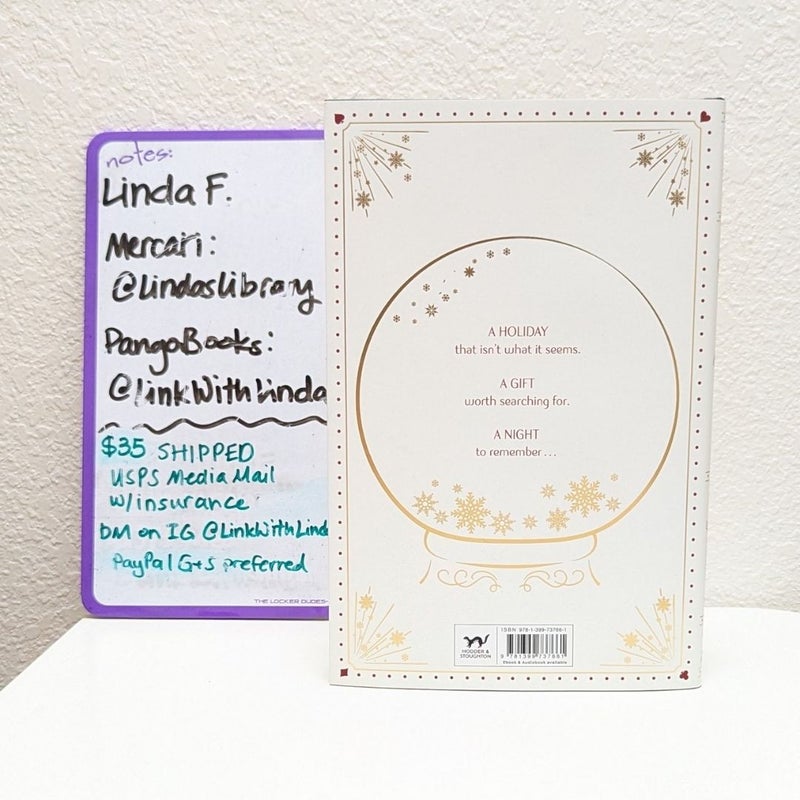 notes:
Linda F.
Mercari:
@lindaslibrary
PangoBooks:
@linkWithLinda
$35 SHIPPED
USPS Media Mail
w/insurance
DM on IG @LinkWithLinda
PayPal G+S preferred
THE LOCKER DUDES
A HOLIDAY
that isn't what it seems.
A GIFT
worth searching for.
A NIGHT
to remember...
HODDER &
STOUGHTON
ISBN 978-1-399-73766-1
9 781399 737661
Ebook & Audiobook available